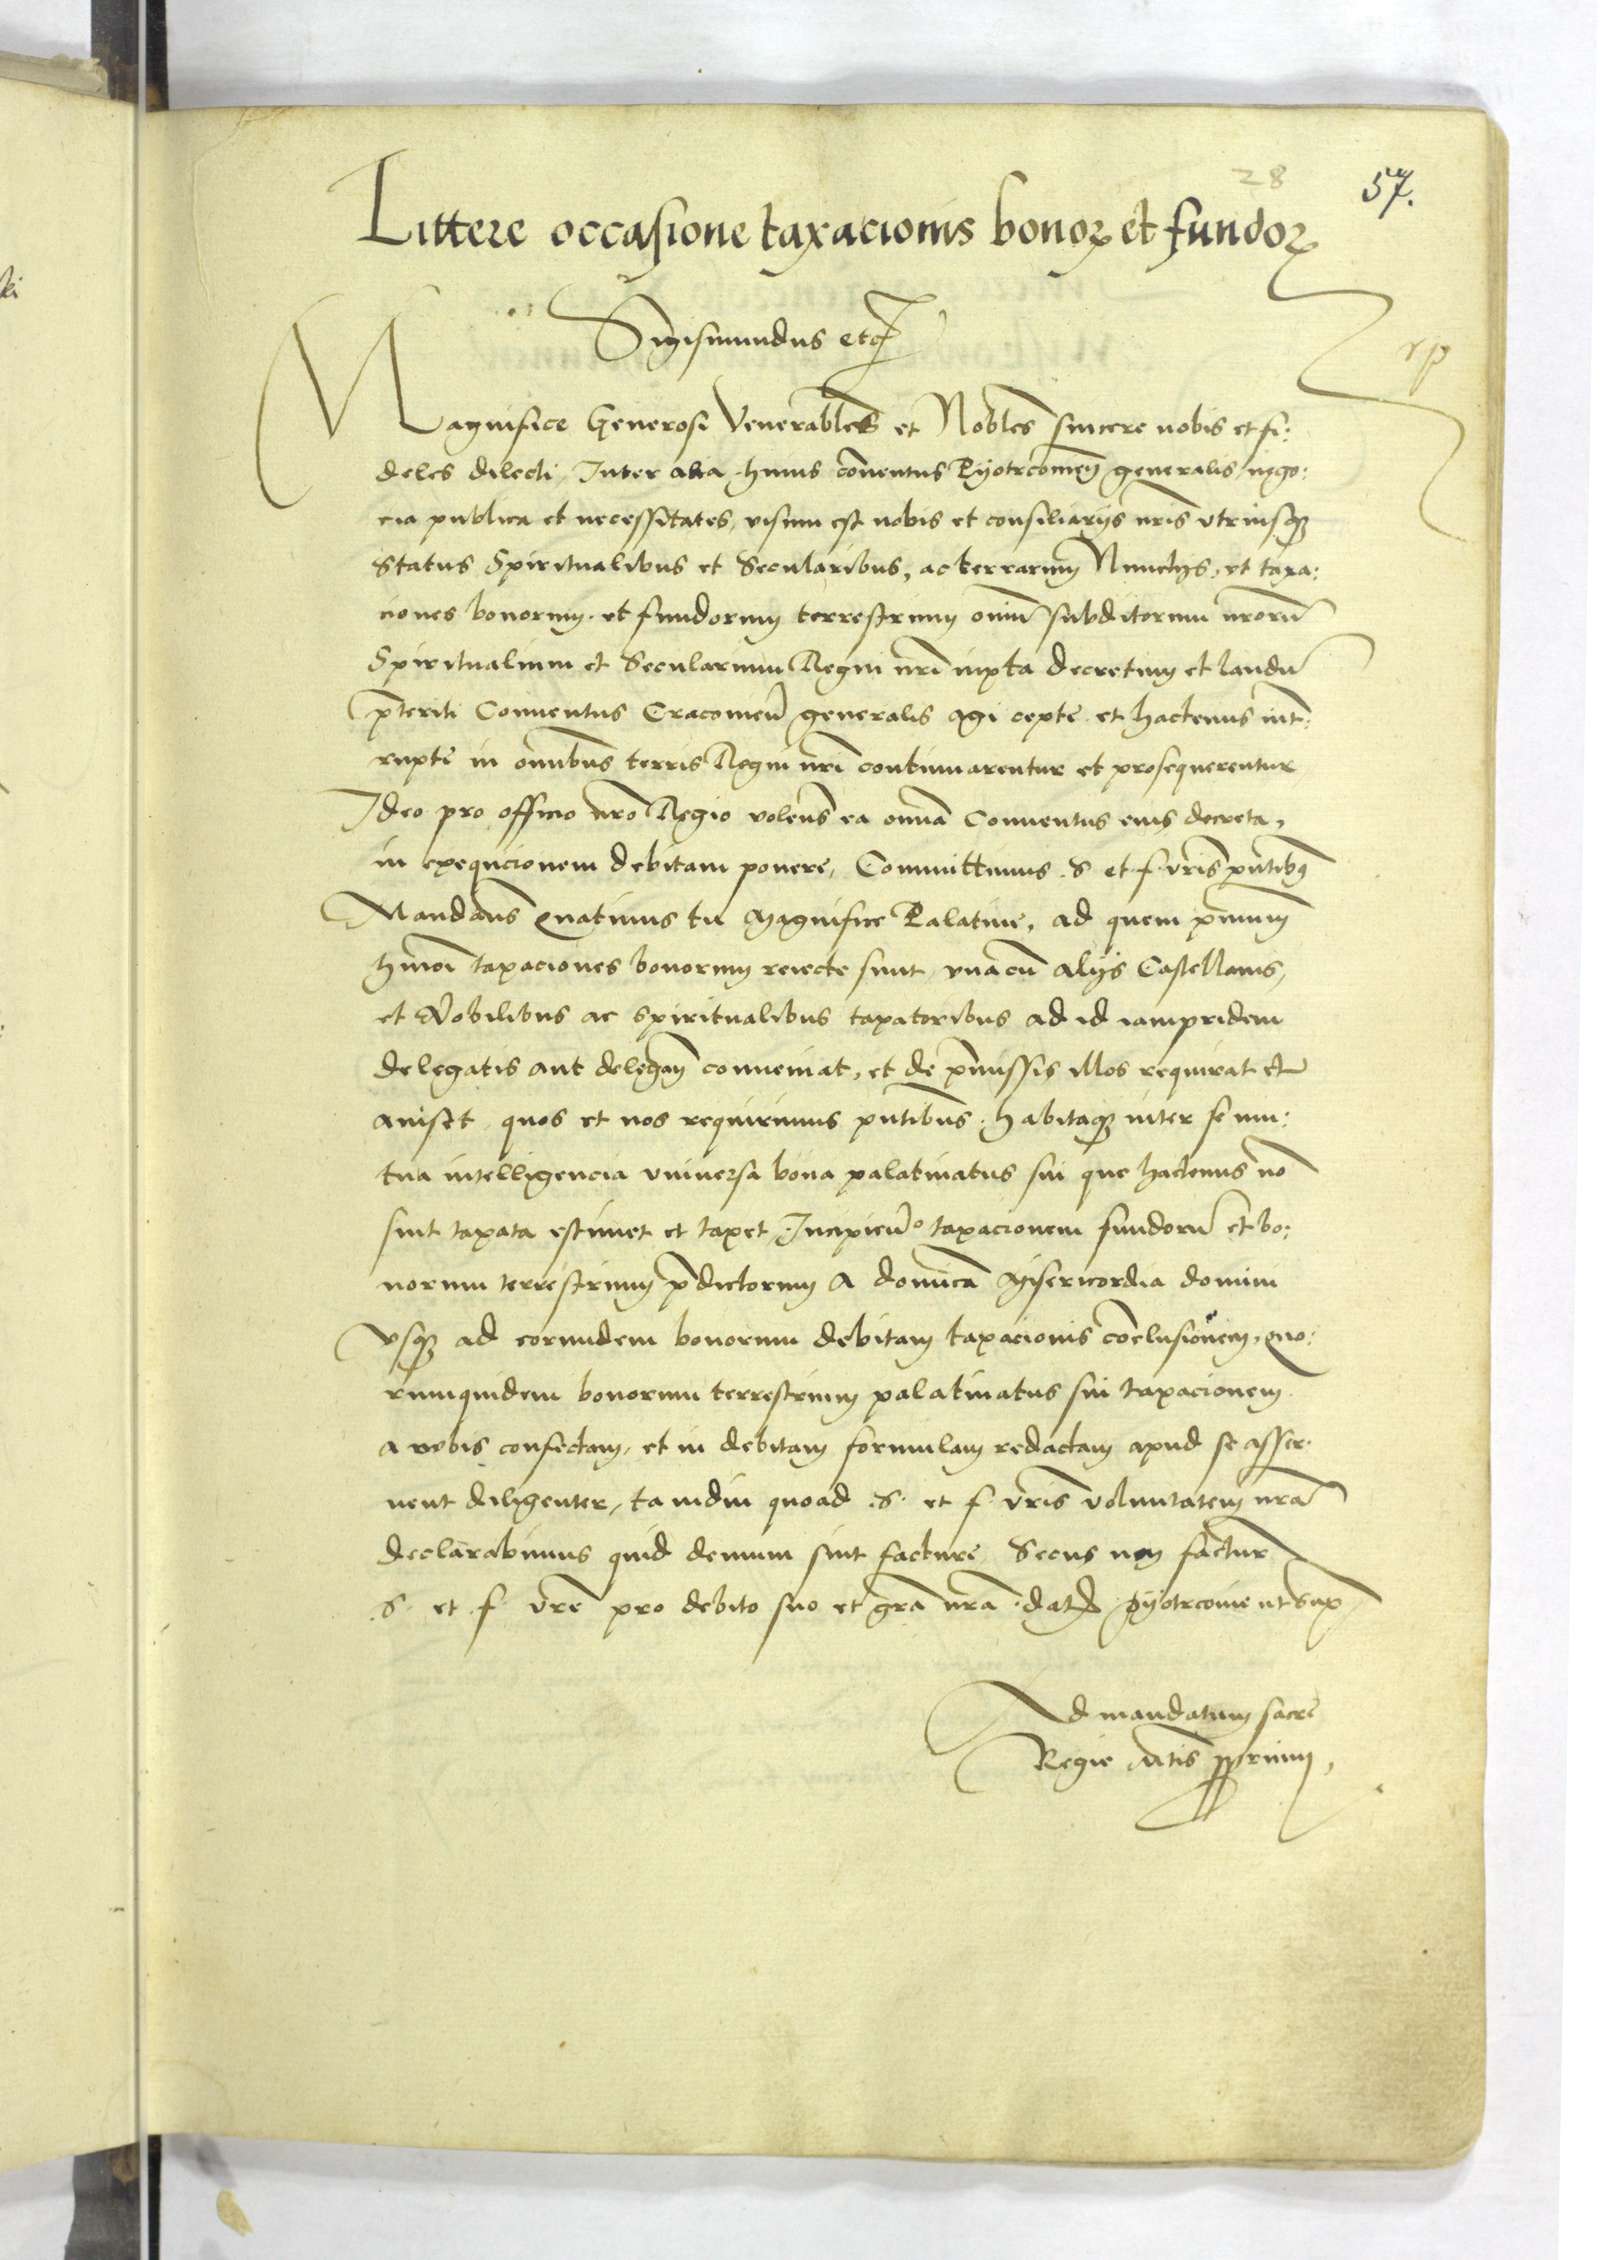 28 57.
Littere occasione taxacionis bonoꝝ et fundoꝝ
Sigismundus etc
rp
Magnifice Generosi Venerabiles et Nobles sincere nobis et fi:
deles dilecti, Inter alia huius conuentus Pyotrcomen generalis nego:
cia publica et necessitates, visum est nobis et consiliarijs nris vtriusqꝫ
Status Spiritualibus et Secularibus, ac terrarum Nuncijs, vt taxa:
ciones bonorum et fundorum terrestrium omium subditorum nroru
Spiritualium et Secularium Regni nri iuxta decretum et laudu
pteriti Conuentus Cracomen generalis agi cepte et hactenus int:
rupte in omnibus terris Regni nri continuarentur et prosequerentur
Ideo pro officio nro Regio volens ea omnia Conuentus eius decreta,
in exequcionem debitam ponere, Committimus S et f vris pntibꝰ
Mandans Quatinus tu Magnifice Palatine, ad quem pmum
hmoi taxaciones bonorum reiecte sunt, vna cu alijs Castellanis,
et Nobilibus ac spiritualibus taxatoribus ad id iampridem
delegatis aut delegan conueniat, et de pmissis illos requirat et
auiset quos et nos requirimus pntibus. habitaqꝫ inter se mu:
tua intelligencia vniuersa bona palatinatus sui que hactenus no
sint taxata estimet et taxet, Incipien taxacionem fundoru et bo:
norum terrestrium pdictorum a domica Misericordia domini
vsqꝫ ad eorundem bonorum debitam taxacionis conclusionem, quo:
rumquidem bonorum terrestrium palatinatus sui taxacionem
a vobis confectam, et in debitam formulam redactam apud se asser
uent diligenter, tamdiu quoad S et f vris voluntatem nra
declarabimus quid demum sint facture, Secus non factur
S et f vre pro debito suo et gra nra. dat Pyotrcomie vt sup
Ad mandatum sacre
Regie Mtis pprium